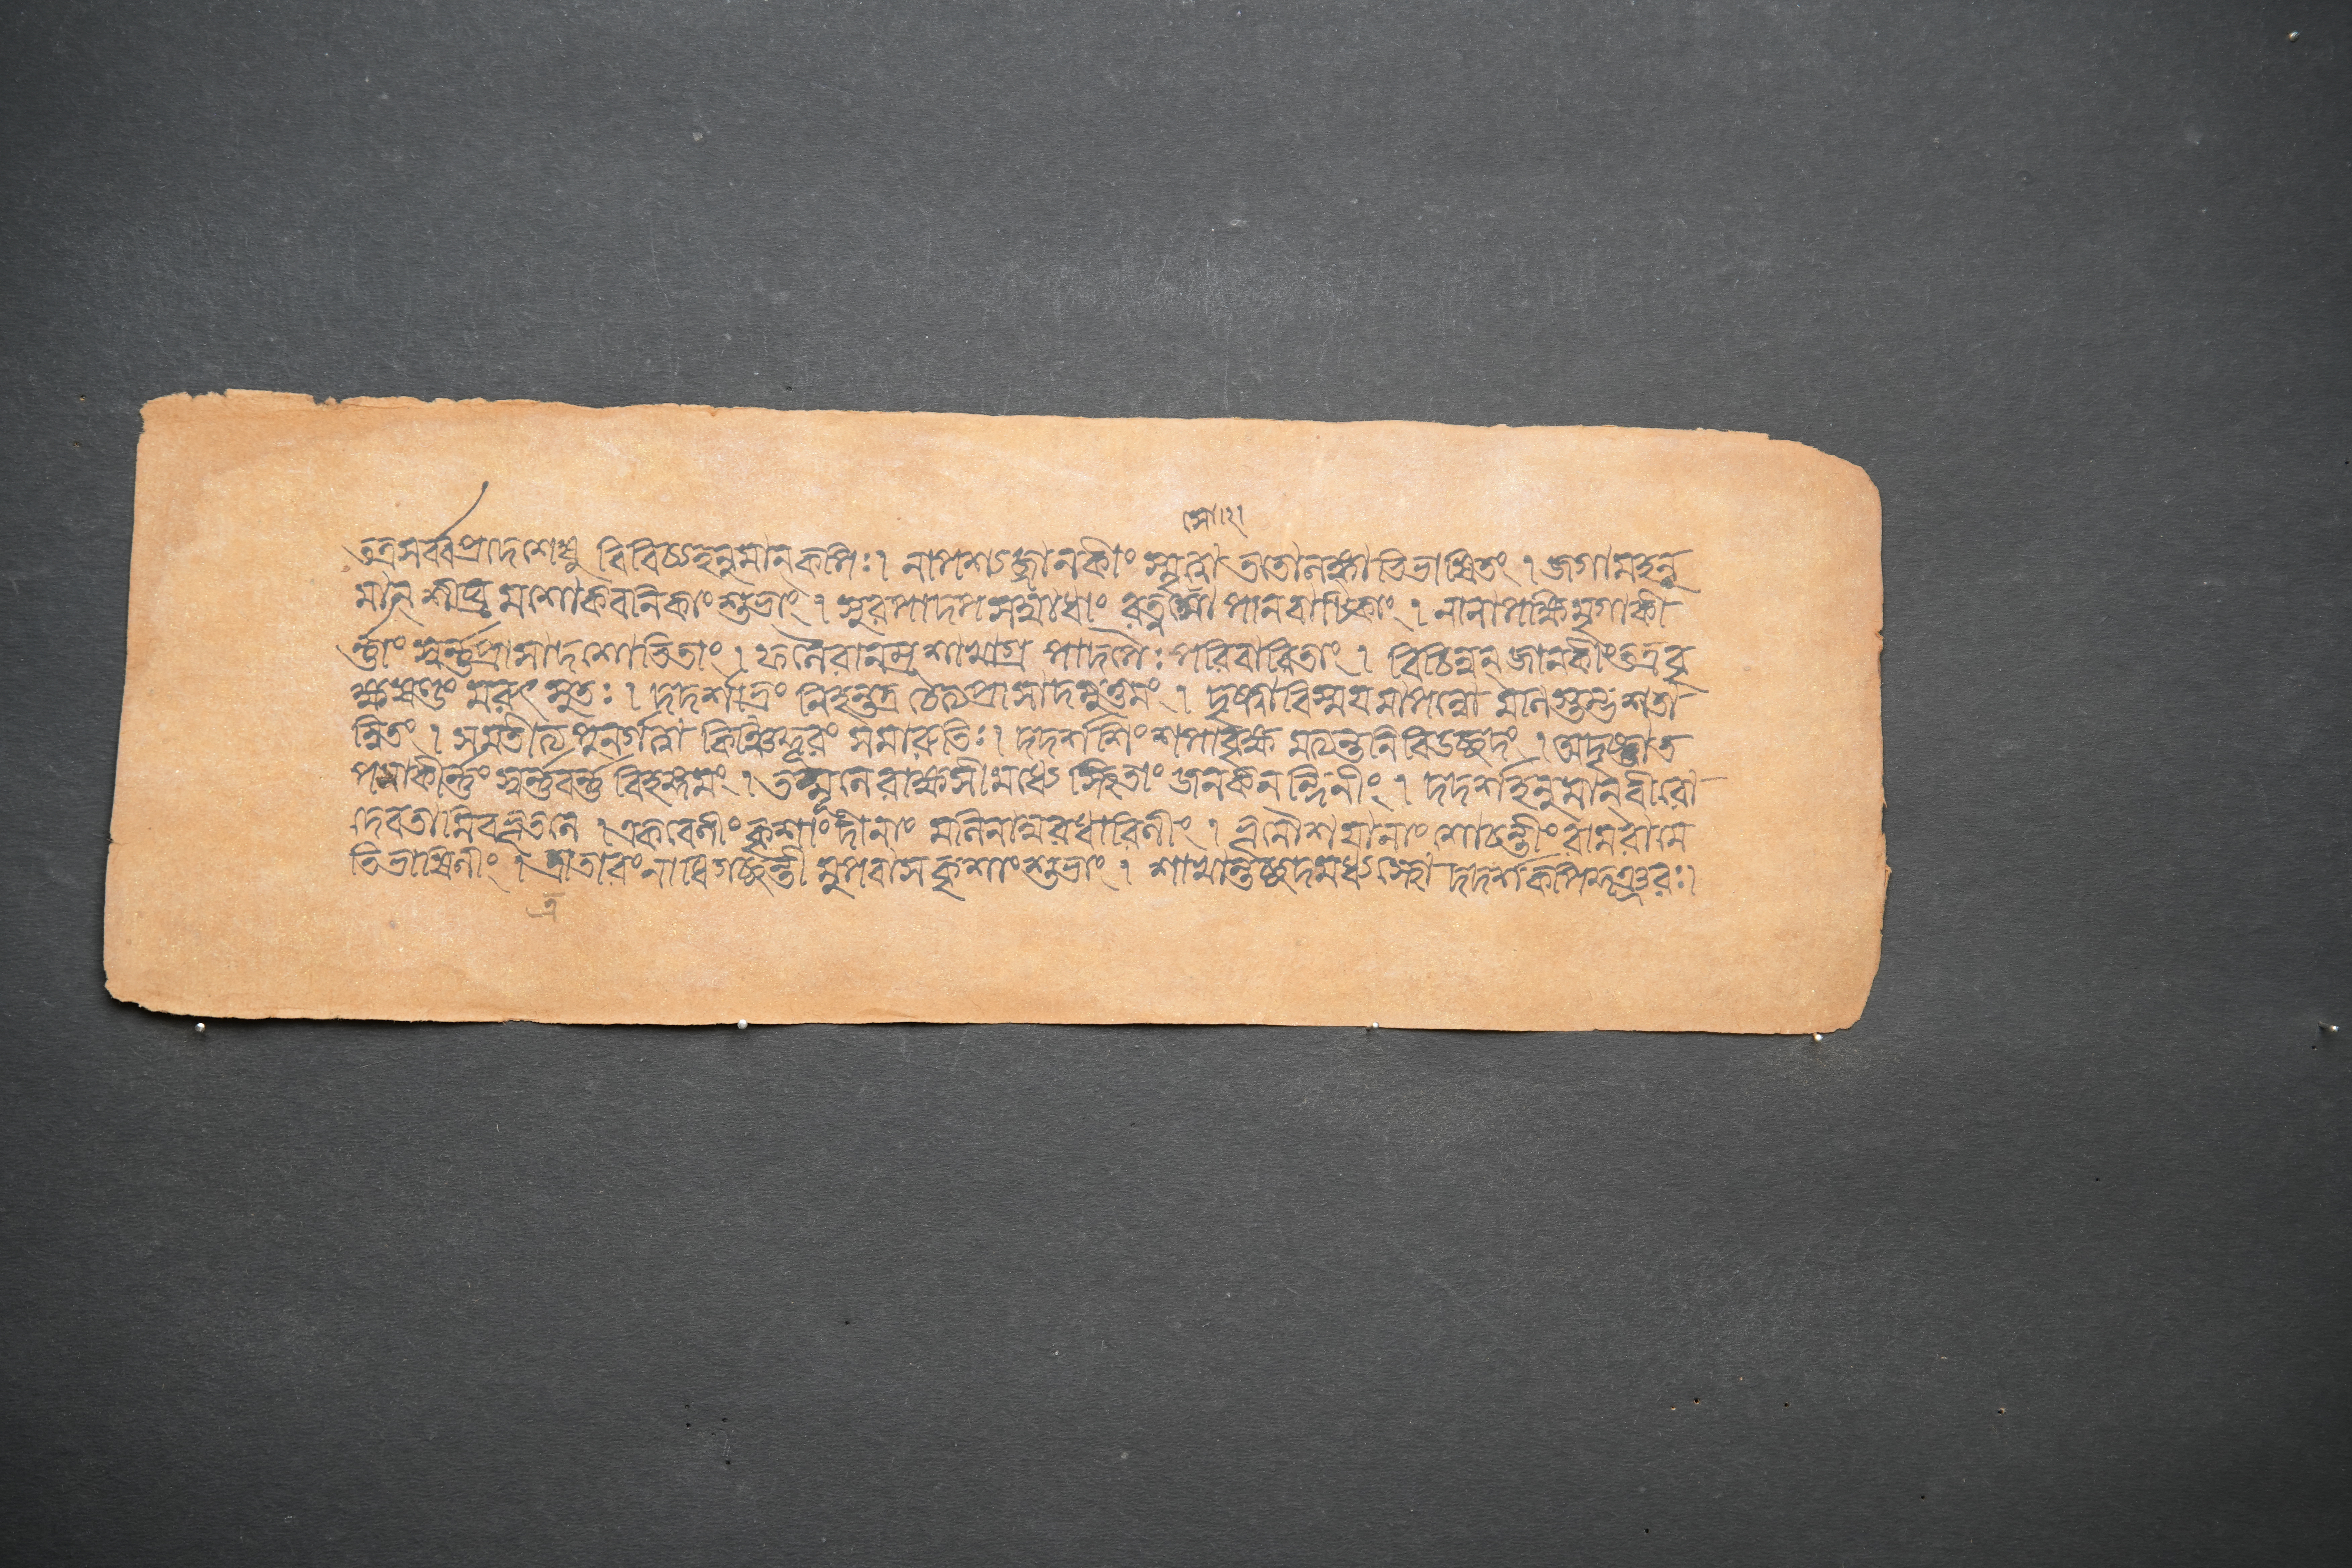 সো।২।
তত্রসর্ব্বপ্রদেশেষু বিবিচ্যহনুমান্কপিঃ। নাপশ্যজ্জানকীং স্মৃত্বা ততোলঙ্কাভিভাষিতং । জগামহনু
মান্ শীঘ্র মশোকবনিকাং শুভাং । সুরপাদপ সম্বাধাং রত্নসোপানবাপিকাং । নানাপক্ষিমৃগাকী
র্ন্নাং স্বর্ন্নপ্রাসাদশোভিতাং । ফলৈরানম্র শাখাগ্র পাদপৈঃ পরিবারিতাং । বিচিন্বন্ জানকীংতত্রবৃ
ক্ষষণ্ডং মরুৎ সুতঃ । দদর্শাভ্রং লিহন্তত্র চৈত্যপ্রাসাদমুত্তমং । দৃষ্ট্বাবিস্ময়মাপন্নো মনিস্তম্ভশতা
ন্বিতং । সমতীত্য পুনর্গত্বা কিঞ্চিদ্দূরং সমারুতিঃ । দদর্শশিংশপাবৃক্ষ মত্যন্তনিবিডচ্ছদং । অদৃষ্টাত
পমাকীর্ন্নং স্বর্ন্নবর্ন্নবিহঙ্গমং । তন্মূলে রাক্ষসীমধ্যে স্থিতাং জনকনন্দিনীং । দদর্শহনুমান্বীরো
দেবতামিবভূতলে । একবেণীং কৃশাংদীনাং মলিনাম্বরধারিণীং । ভূমৌশয়ানাং শোচন্তীং রামরামে
তিভাষিণীং । ত্রাতারংনাধিগচ্ছন্তী মুপবাসকৃশাংশুভাং । শাখান্তচ্ছদমধ্যস্থো দদর্শকপিকুঞ্জরঃ।
ত্র